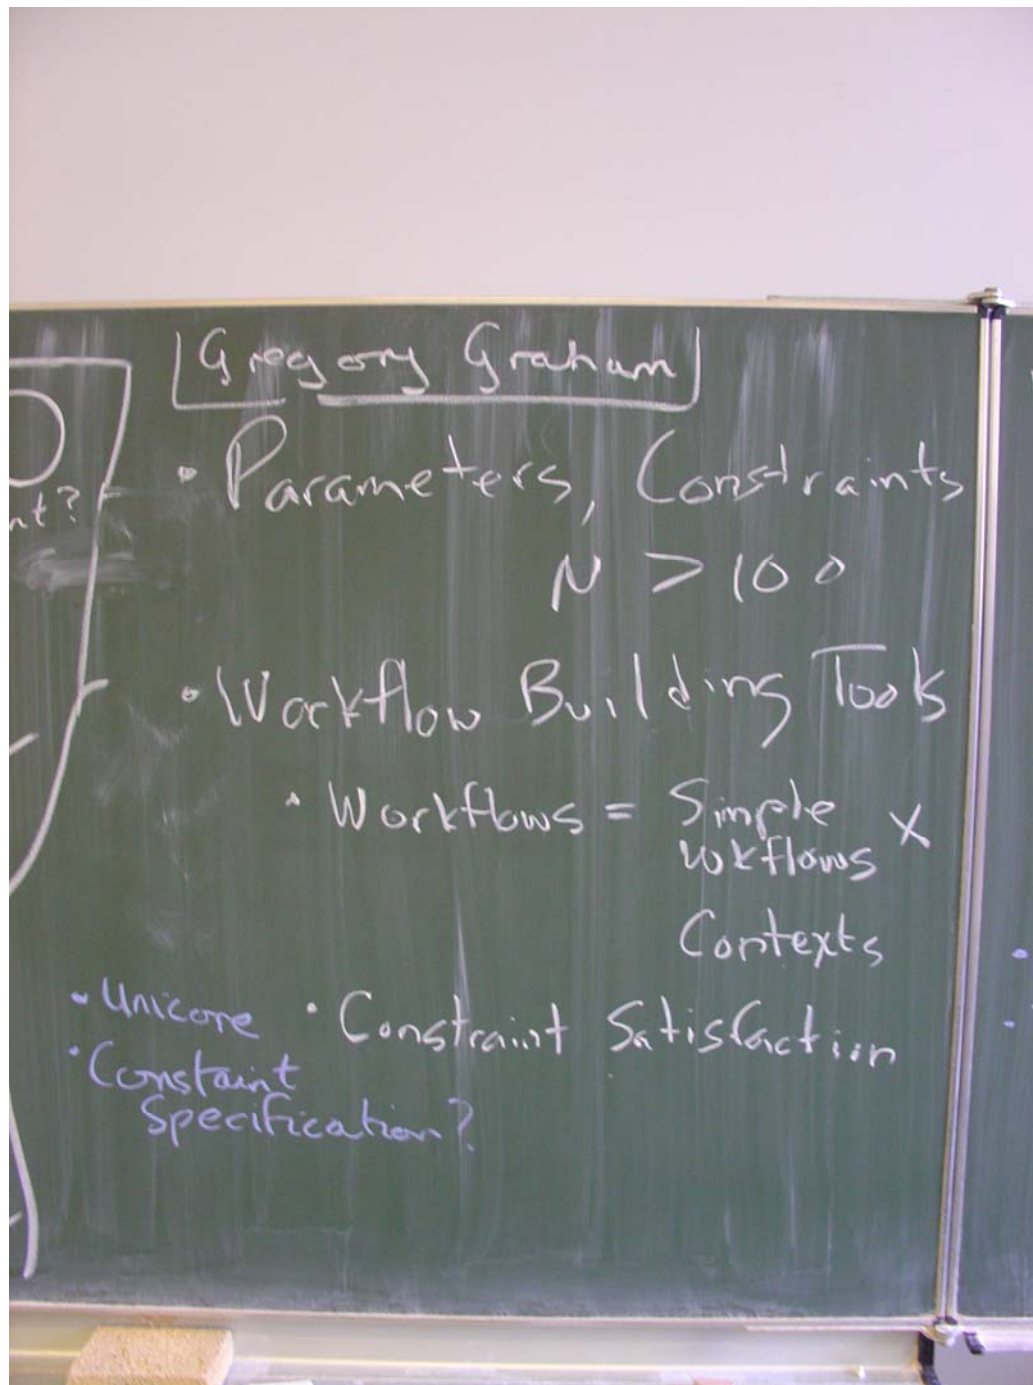 Gregory Graham
nt?
• Parameters, Constraints
N > 100
• Workflow Building Tools
• Workflows = Simple X
wkflows
Contexts
• Unicore
• Constraint Satisfaction
• Constaint
Specification?